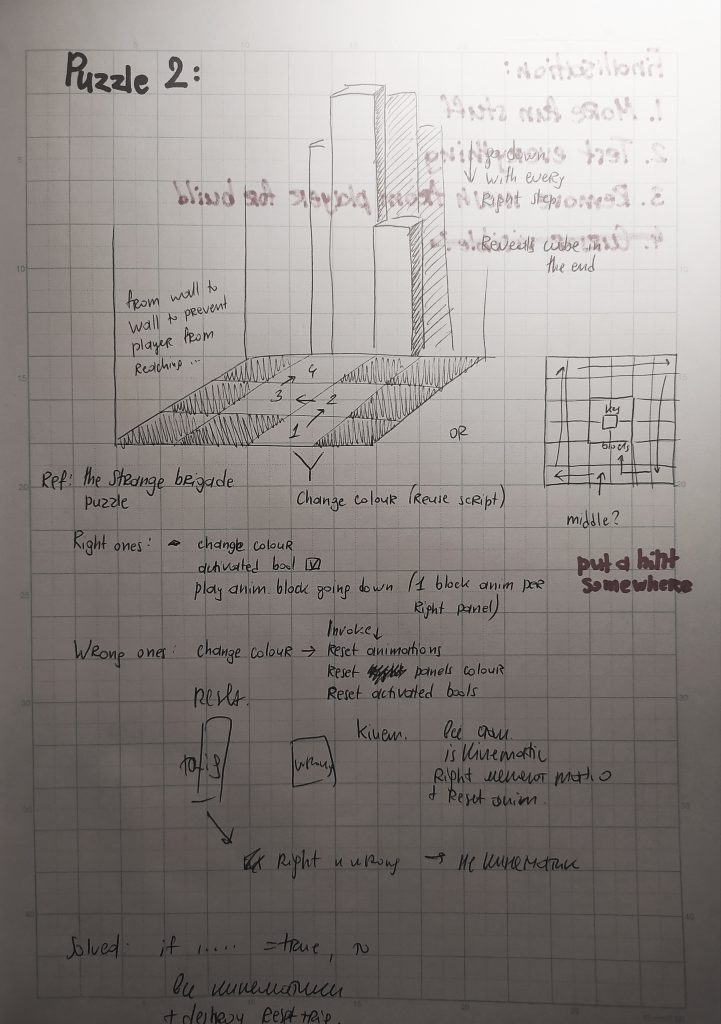 Puzzle 2:
go down
with every
Right step
Reveals cube in
the end
from wall to
wall to prevent
player from
Reaching ...
4
3
2
1
OR
key
blocks
middle?
Ref: the strange brigade
puzzle
Change colour (Reuse script)
put a hint
somewhere
Right ones: change colour
activated bool
play anim. block going down (1 block anim per
Right panel)
Wrong ones: change colour →
Invoke ↓
Reset animations
Reset panels colour
Reset activated bools
wrong
Kinem.
is Kinematic
Right
+ Reset anim.
Right и wrong → не кинематик
Solved: if ..... = true, то
все кинематики
+ destroy
Finalisation:
1. Make fun stuff
2. Test everything
3. Remove from player for build
4.